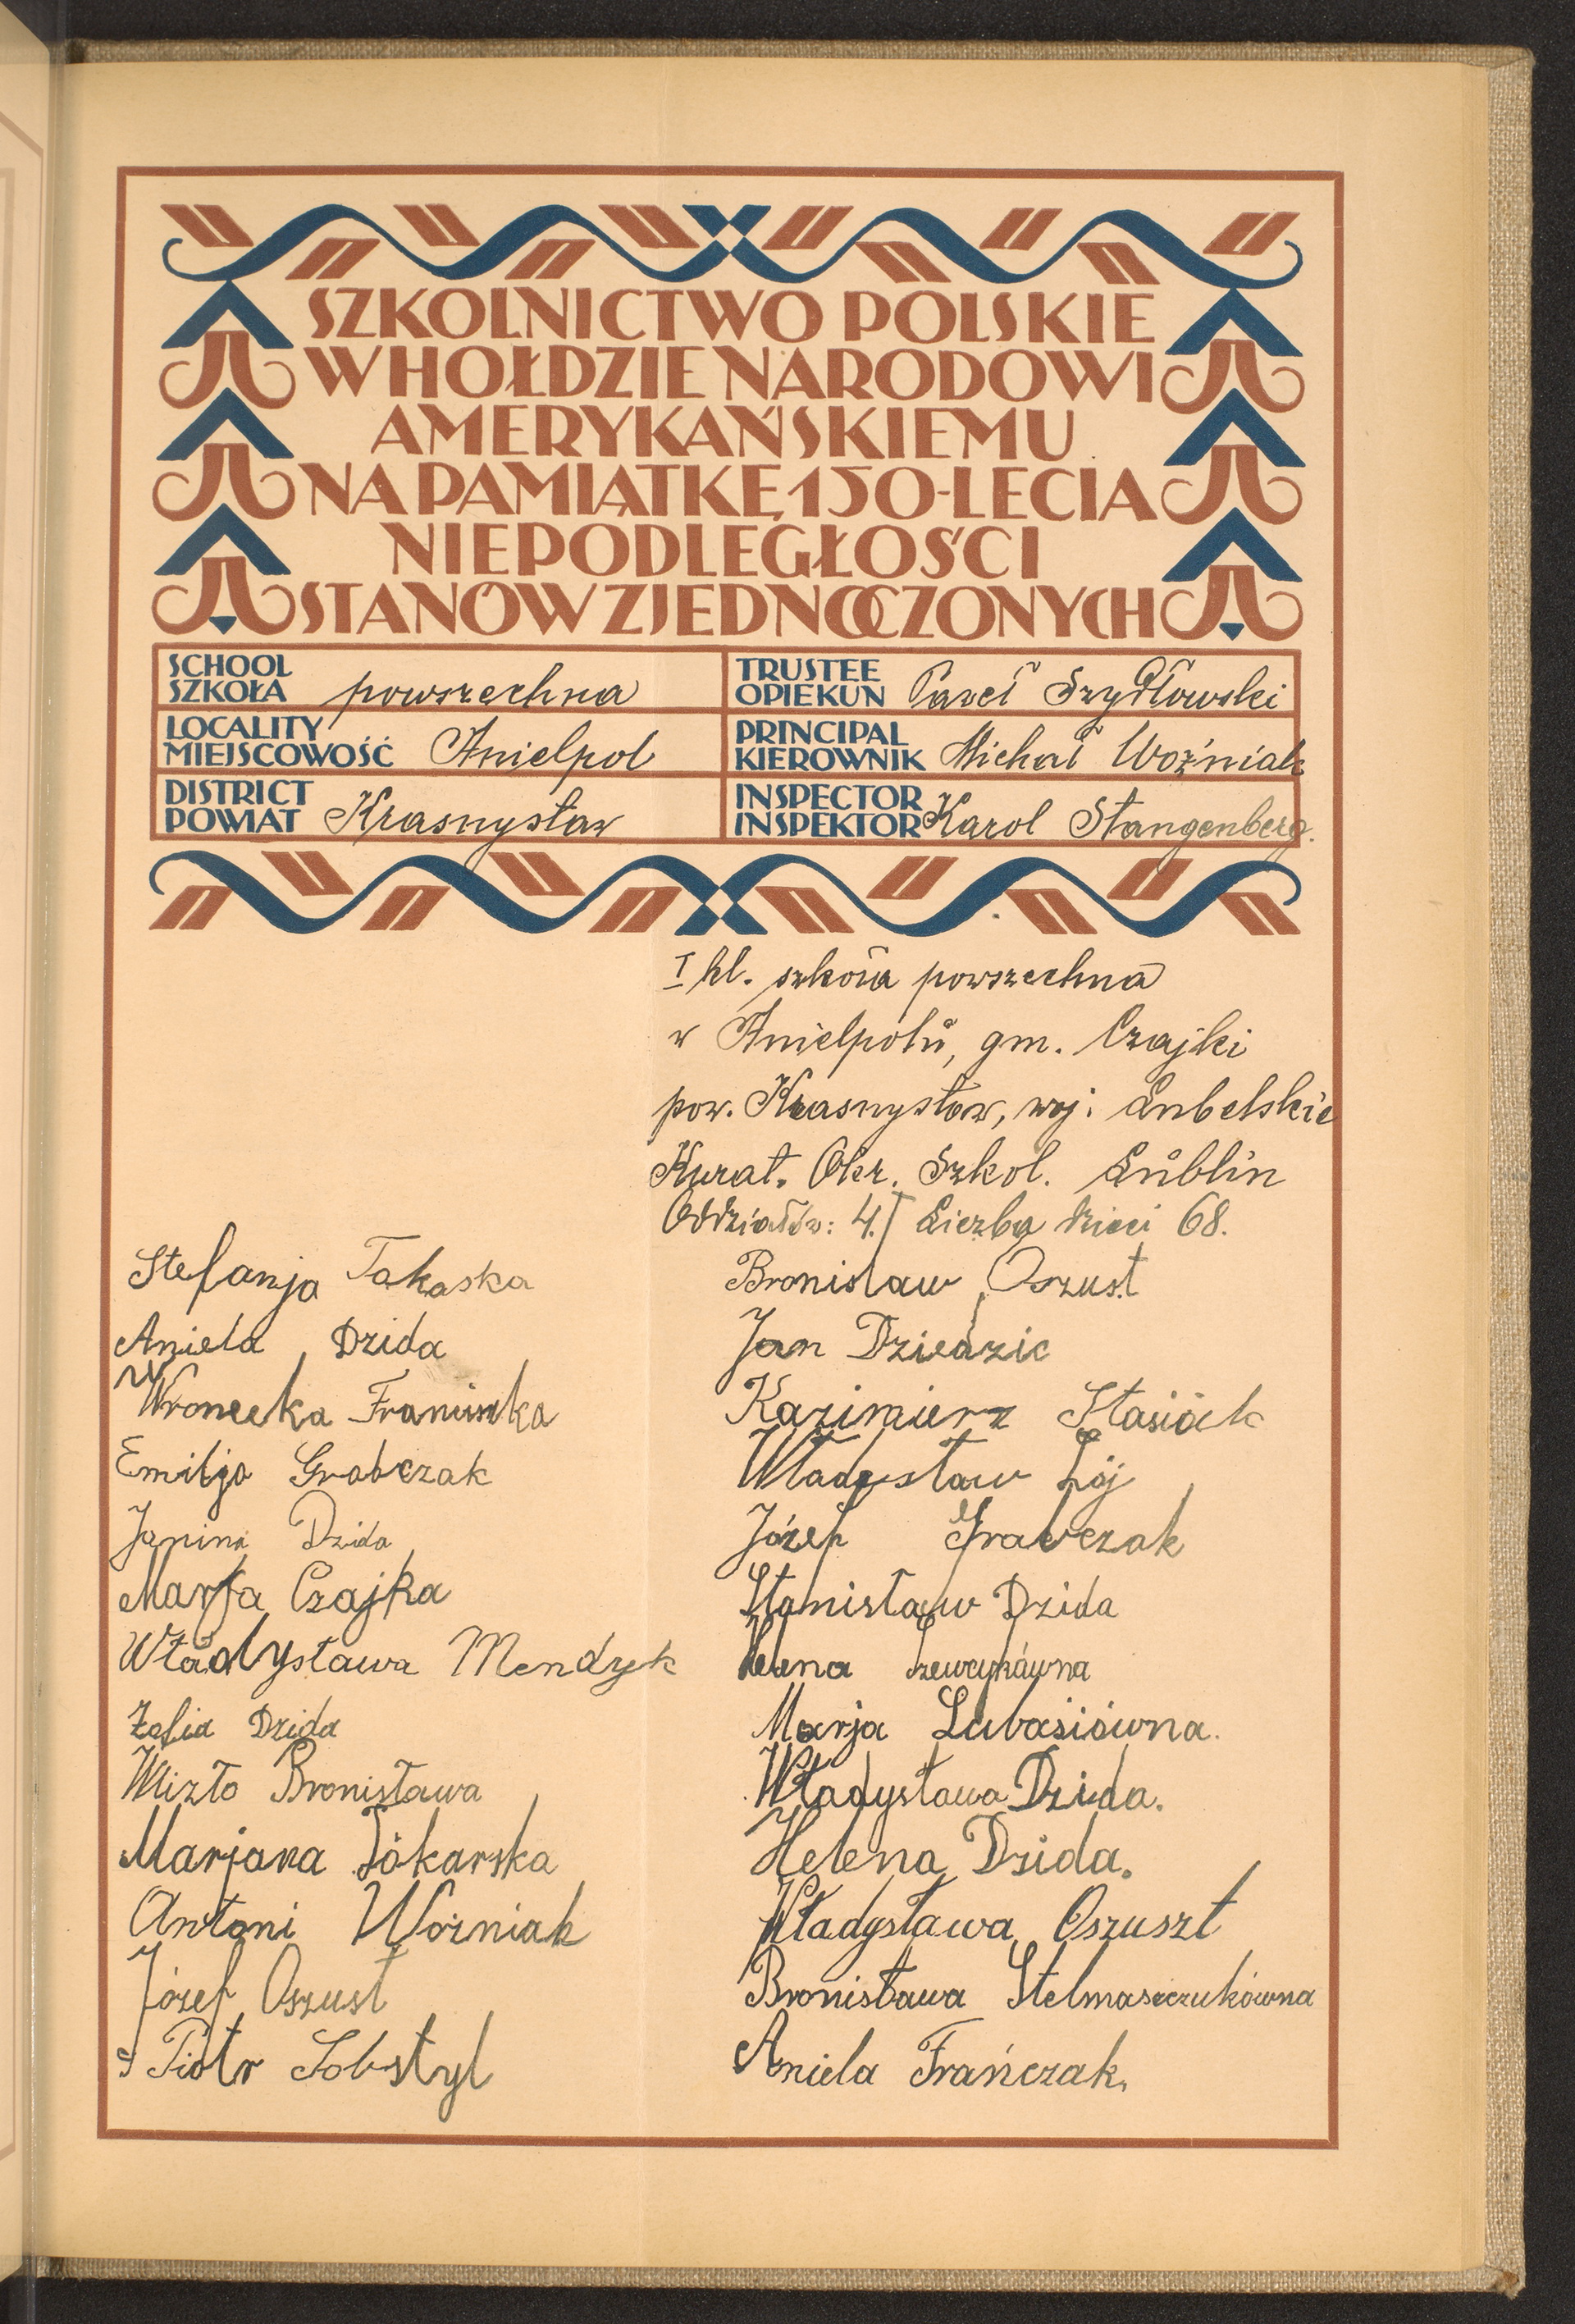 SZKOLNICTWO POLSKIE
W HOŁDZIE NARODOWI
AMERYKAŃSKIEMU
NA PAMIĄTKĘ 150-LECIA
NIEPODLEGŁOŚCI
STANÓW ZJEDNOCZONYCH
SCHOOL
SZKOŁA powszechna
TRUSTEE
OPIEKUN Paweł Szydłowski
LOCALITY
MIEJSCOWOŚĆ Anielpol
PRINCIPAL
KIEROWNIK Michał Woźniak
DISTRICT
POWIAT Krasnystaw
INSPECTOR
INSPEKTOR Karol Stangenberg.
I kl. szkoła powszechna
w Anielpolu, gm. Czajki
pow. Krasnystaw, woj: Lubelskie
Kurat. Okr. Szkol. Lublin
Oddziałów: 4. Liczba dzieci 68.
Stefanja Takaska
Aniela Dzida
Wronecka Franciszka
Emilja Grabczak
Janina Dzida
Marja Czajka
Władysława Mendzyk
Zofia Dzida
Mizło Bronisława
Marjana Tokarska
Antoni Woźniak
Józef Oszust
Piotr Sobstyl
Bronisław Oszust
Jan Dziedzic
Kazimierz Stasiak
Władysław Łój
Józef Grabczak
Stanisław Dzida
Helena Szewczykówna
Marja Lubasiówna.
Władysława Dzida.
Helena Dzida.
Władysława Oszuszt
Bronisława Stelmaszczukówna
Aniela Frańczak.